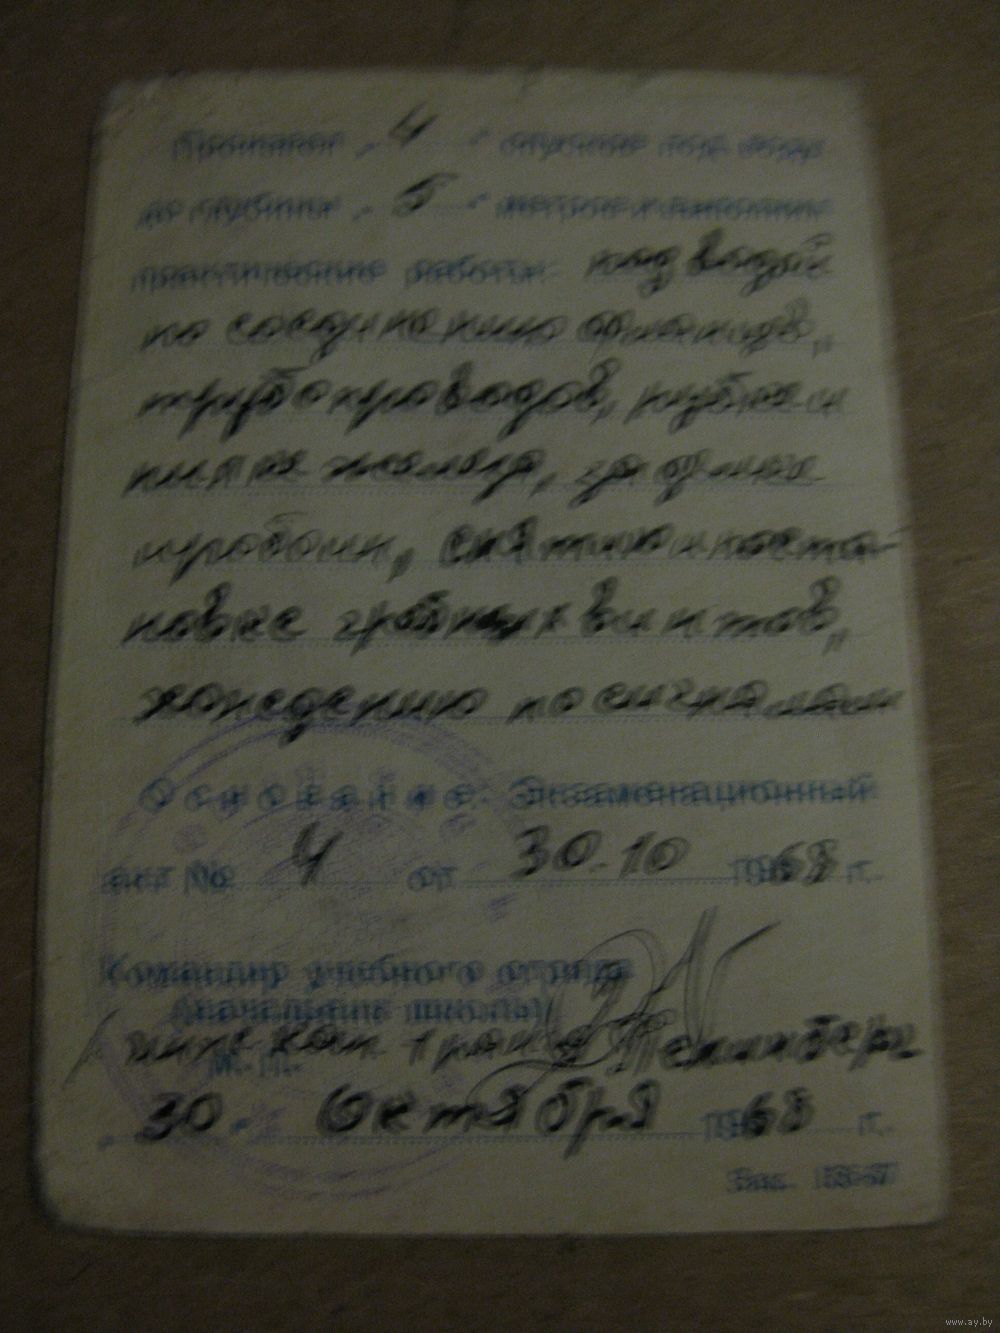 Произвел „ 4 “ спусков под воду
до глубины „ 5 “ метров и выполнил
практические работы: под водой
по соединению фланцев,
трубопроводов, рубке и
железа, заделке
пробоин, снятию и поста-
новке гребных винтов,
хождению по сигналам
Основание: Экзаменационный
акт № 4 от 30.10 1968 г.
Командир учебного отряда
(начальник школы)
инж кап 1 ранга
М. П.
30. Октября 1968 г.
Зак.
www.ay.by